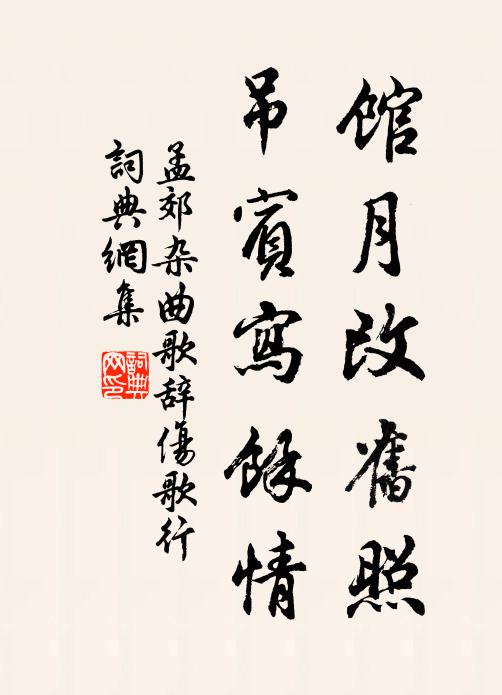 馆月改舊照
吊賓寫餘情
孟郊杂曲歌辞傷歌行
詞典網集
詞典网印